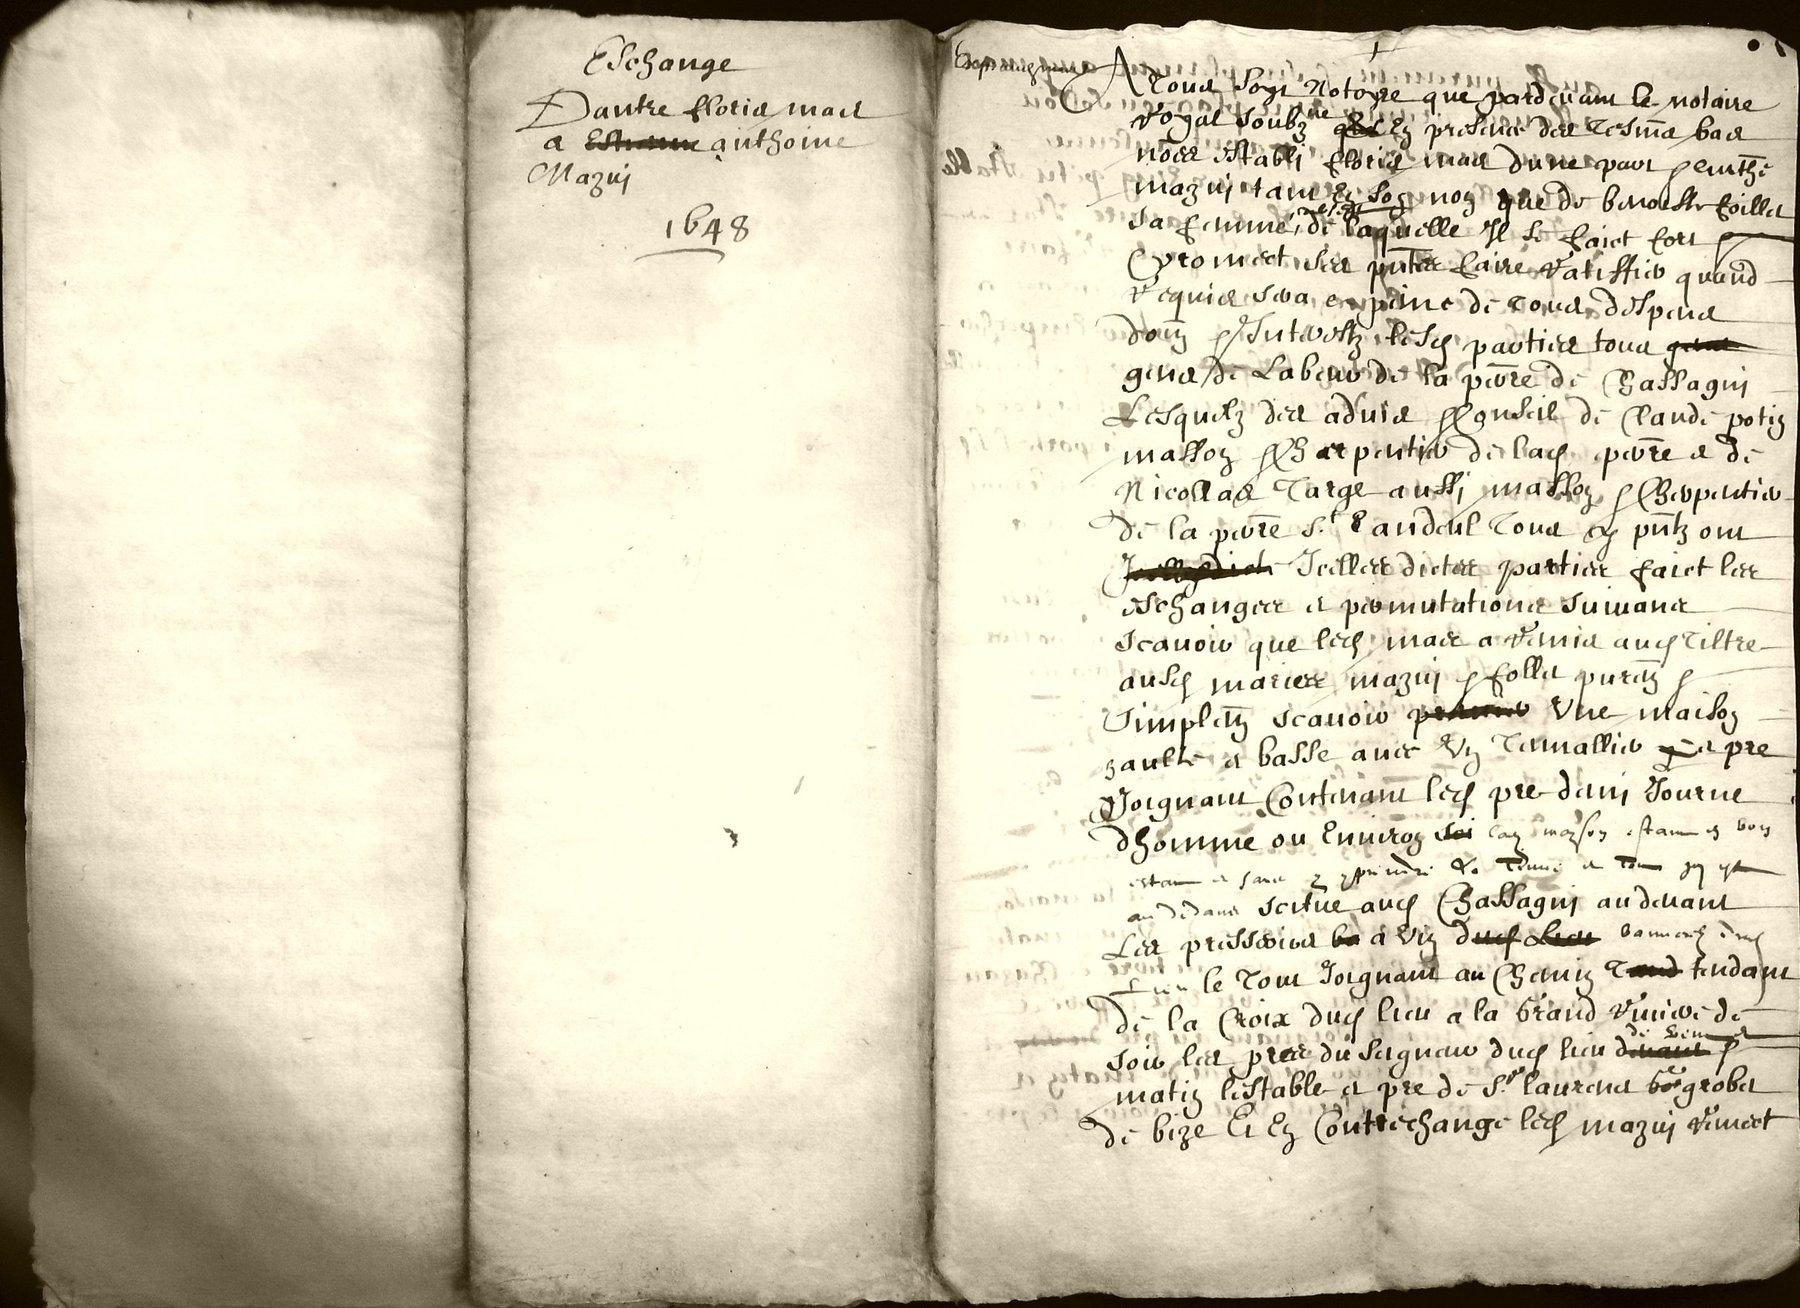 Eschange
Dantre Floris mas
a anthoine
Mazuj
1648
A Tous Soyt Notoyre que pardevant le notaire
royal soubz ne en presence des Tesm̄ bas
nōes establi Floris mas dune part & anth̄e
mazuj tant En Son nom que de benoiste
Sa femme de laquelle Il se faict fort &
promect ses pn̄tes faire ratiffier quand
requis sera a peine de Tous despens
dom̄ & Interestz lesd parties tous
gens de Labeur de la pār̄re de Chassagnj
Lesquelz des advis & Conseil de Claude potin
masson & Charpentier de lad par̄re & de
Nicollas Targe aussi masson & Charpentier
de la par̄re St Landeul Tous cy pn̄tz ont
Icelles dictes parties faict les
eschanges et permutations suivans
Scavoir que led mas a remis aud Tiltre
ausd maries mazuj & purem̄ &
Simplem̄ scavoir Une maison
haulte et basse avec Un Temallier et pre
Joignant Contenant led pre demj Journe
dhomme ou Environ lad mayson estant en bois
au dedans scitue aud Chassagnj au devant
Les pressoirs a Vin bannerez dud
Lieu le Tout Joignant au Chemin tendant
de la Croix dud lieu a la Grand riviere de
soir les pres du seigneur dud lieu de vent &
matin lestable et pre de Sr laurens grobet
de bize Et En Contrechange led mazuj remect